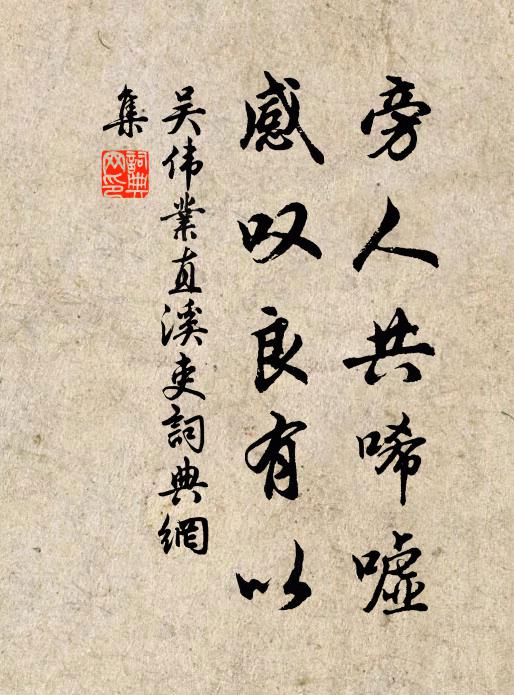 旁人共唏嘘
感叹良有以
吴伟業直溪吏詞典網
集
詞典网印